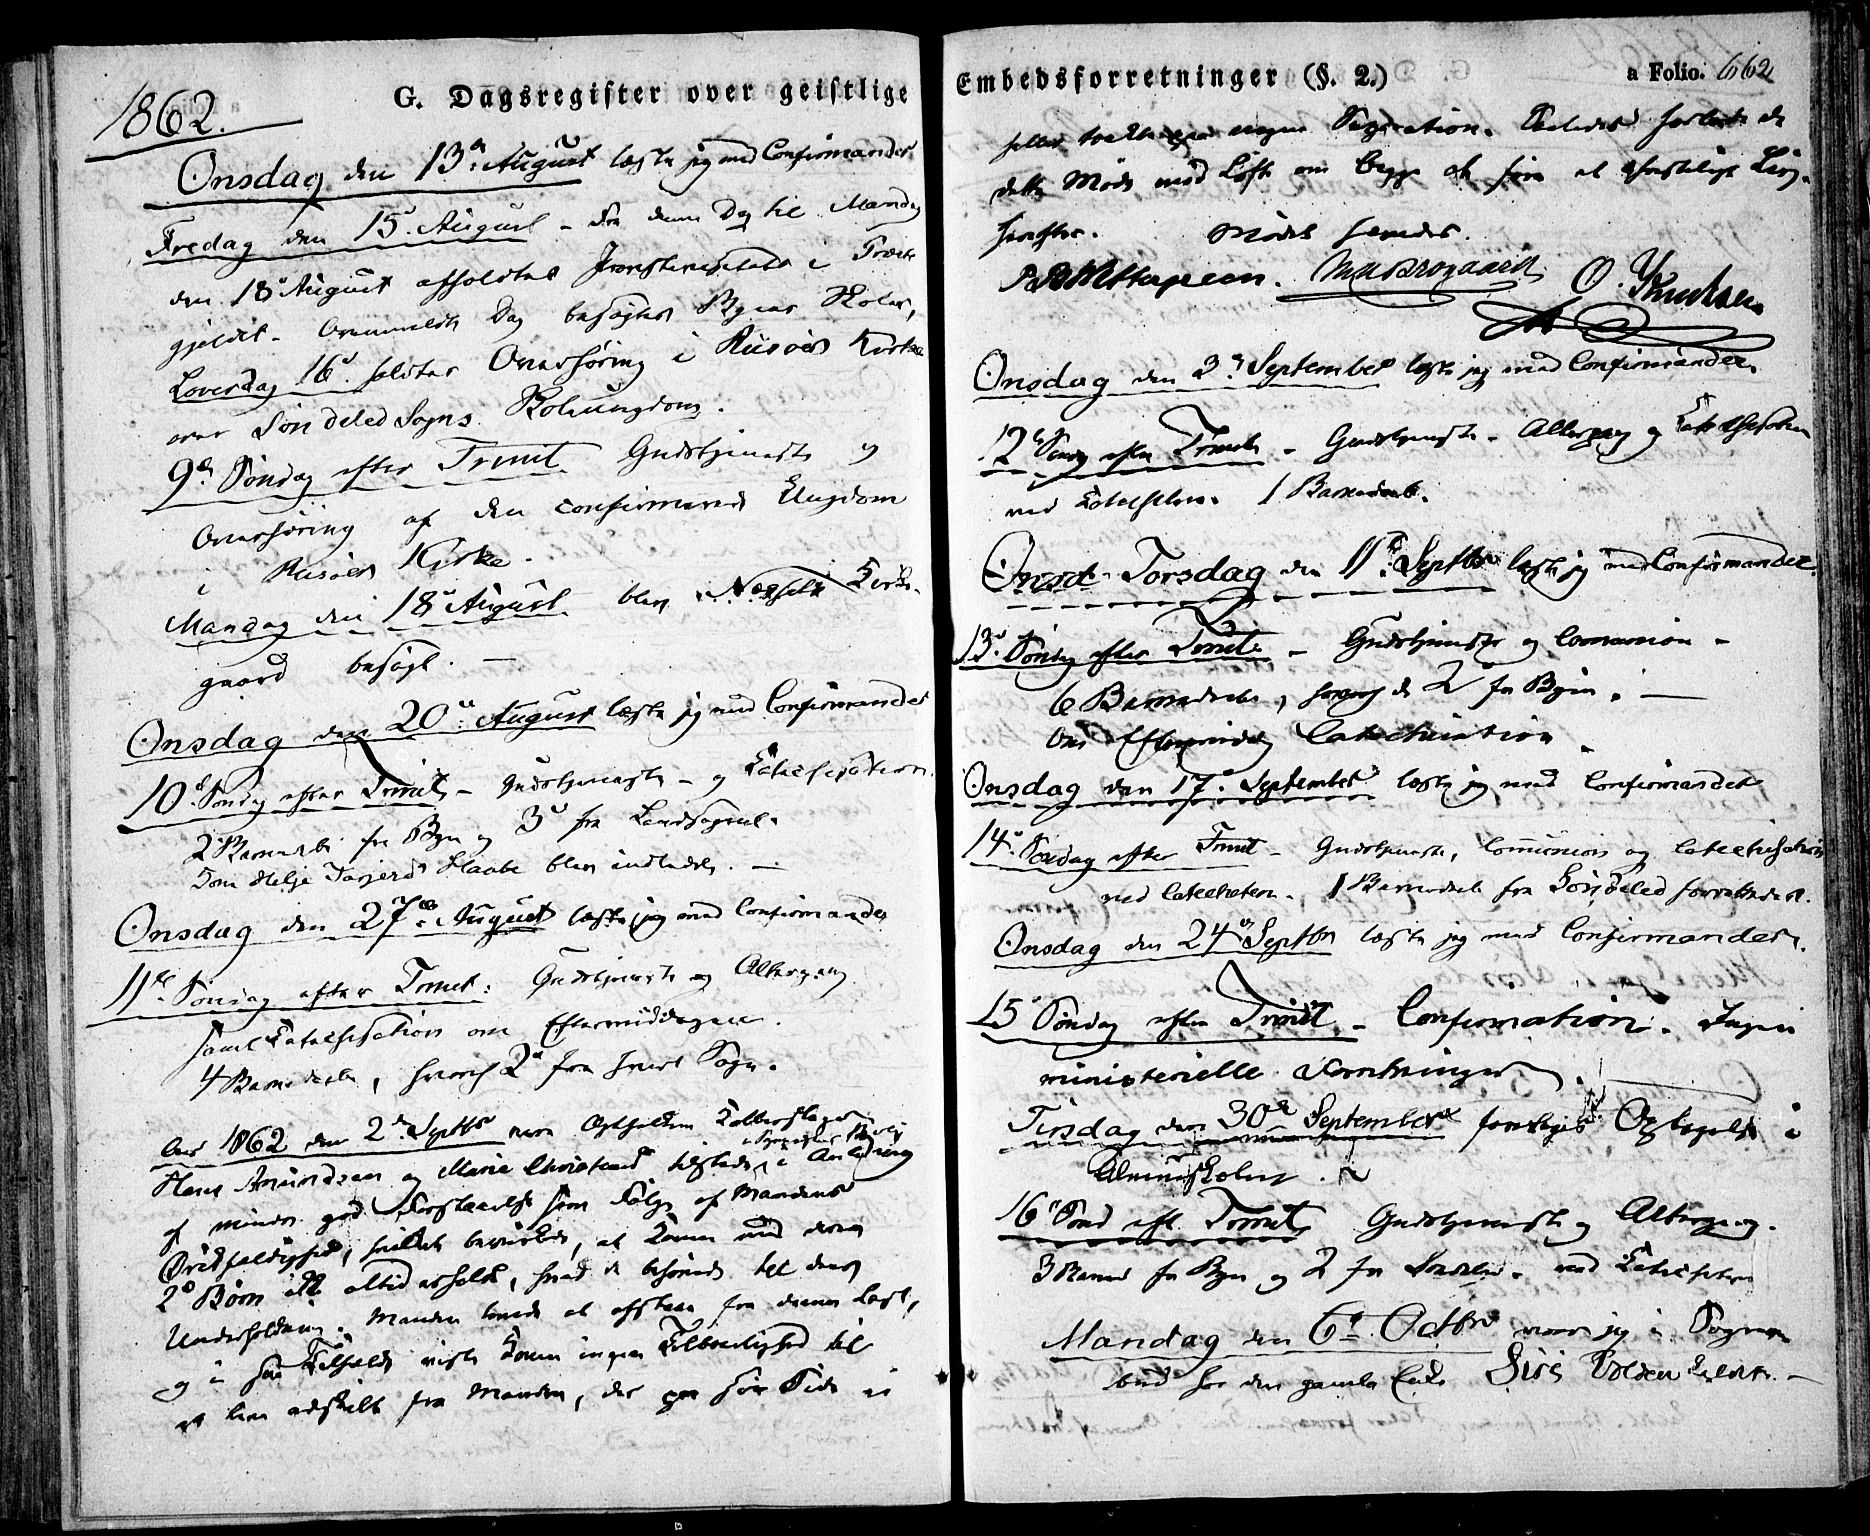 1862.
G. Dagsregister over geistlige
Onsdag den 13de August læste jeg med Confirmander.
Fredag den 15de August - fra denne Dag til Mandag
den 18de August afholdtes Provstevisitats i Præste
gjeldet. Ovenmeldte Dag besøgtes Byens Skoler,
Løverdag 16de holdtes Overhøring i Riisøers Kirke
over Søndeled Sogns Skoleungdom.
9de Søndag efter Trinit. Gudstjeneste og
Overhøring af den confirmerede Ungdom
i Riisøers Kirke.
Mandag den 18de August blev Kirke-
gaard besøgt. —
Onsdag den 20de August læste jeg med Confirmander
10de Søndag efter Trinit. - Gudstjeneste - og Katechisation.
2 Barnedaab fra Byen og 3de fra Landsognet.
Kone Helje Blev indledet. —
Onsdag den 27de August læste jeg med Confirmander
11te Søndag efter Trinit: Gudstjeneste og Altergang
samt Katechisation om Eftermiddagen.
4 Barnedaab, hvoraf 2de fra hvert Sogn.
Aar 1862 den 2den Septbr vare Ægtefolkene
Hans Amundsen og Marie tilstede i Anledning
af mindre god Forstaaelse som Følge af Mandens
Drikfældighed, hvilket bevirkede, at Konen med deres
2de Børn ikke altid erholdt, hvad de behøvede til deres
Underholdning. Manden lovede at afstaae fra denne Last,
og i saa Tilfælde viste Konen ingen Tilbøielighed til
at leve adskilt fra Manden, der paa sin Side ei
Embedsforretninger (§. 2.)
a Folio. 662
heller tænkte paa nogen Separation. Saaledes forlode de
dette Møde med Løfte om begge at føre et christeligt Liv
herefter. Mødet hævedes.
O. Knudsen
Onsdag den 3de September læste jeg med Confirmander.
12te Søndag efter Trinit. - Gudstjeneste - Altergang og Katechisation
ved Katecheten. 1 Barnedaab.
Onsd Torsdag den 11te Septbr læste jeg med Confirmander.
13de Søndag efter Trinit. - Gudstjeneste og Communion -
6 Barnedaab, hvoraf de 2 fra Byen. —
Om Eftermiddag Catechisation.
Onsdag den 17de September læste jeg med Confirmander
14de Søndag efter Trinit - Gudstjeneste, Communion og Catechisation
ved Catecheten. 1 Barnedaab fra Søndeled forrettedes.
Onsdag den 24de Septbr læste jeg med Confirmander.
15de Søndag efter Trinit. - Confirmation. Ingen
ministerielle Forretninger. —
Tirsdag den 30te September foretoges Optagelse i
Almueskolen.
16de Sønd eft. Trinit. Gudstjeneste og Altergang.
3 Børned fra Byen og 2 fra Søndeled. ved Katecheten
Mandag den 6te Octbr var jeg i Sogne-
bud hos den gamle Enke Siri —